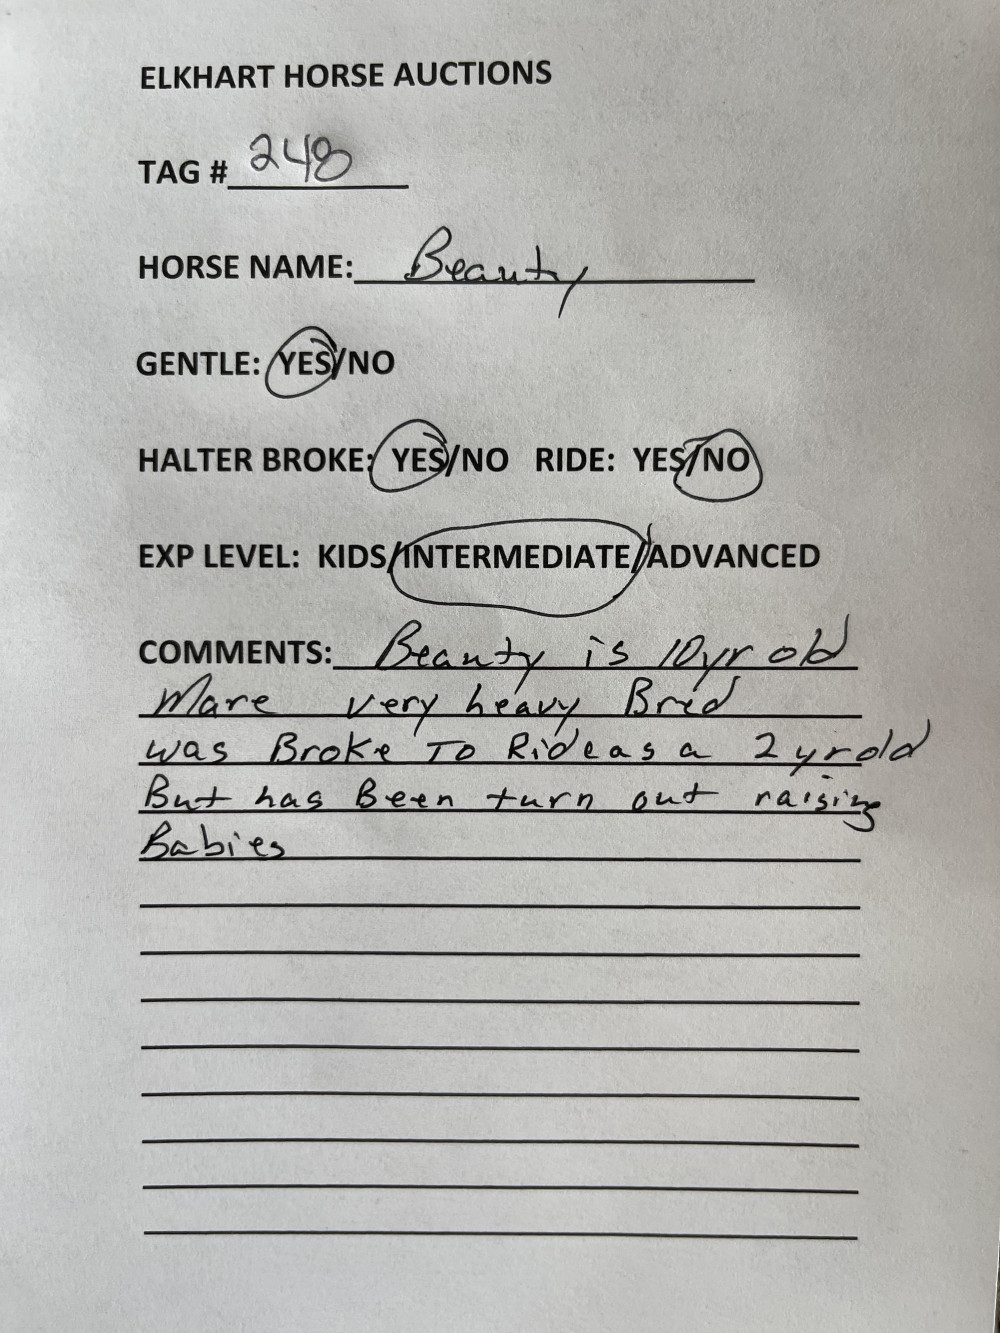 ELKHART HORSE AUCTIONS
TAG # 248
HORSE NAME: Beauty
GENTLE: YES/NO
HALTER BROKE: YES/NO RIDE: YES/NO
EXP LEVEL: KIDS/INTERMEDIATE/ADVANCED
COMMENTS: Beauty is 10yr old
Mare very heavy Bred
was Broke To Ride as a 2 yr old
But has Been turn out raising
Babies